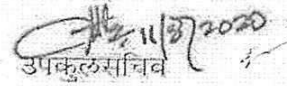 11/3/2020
उपकुलसचिव